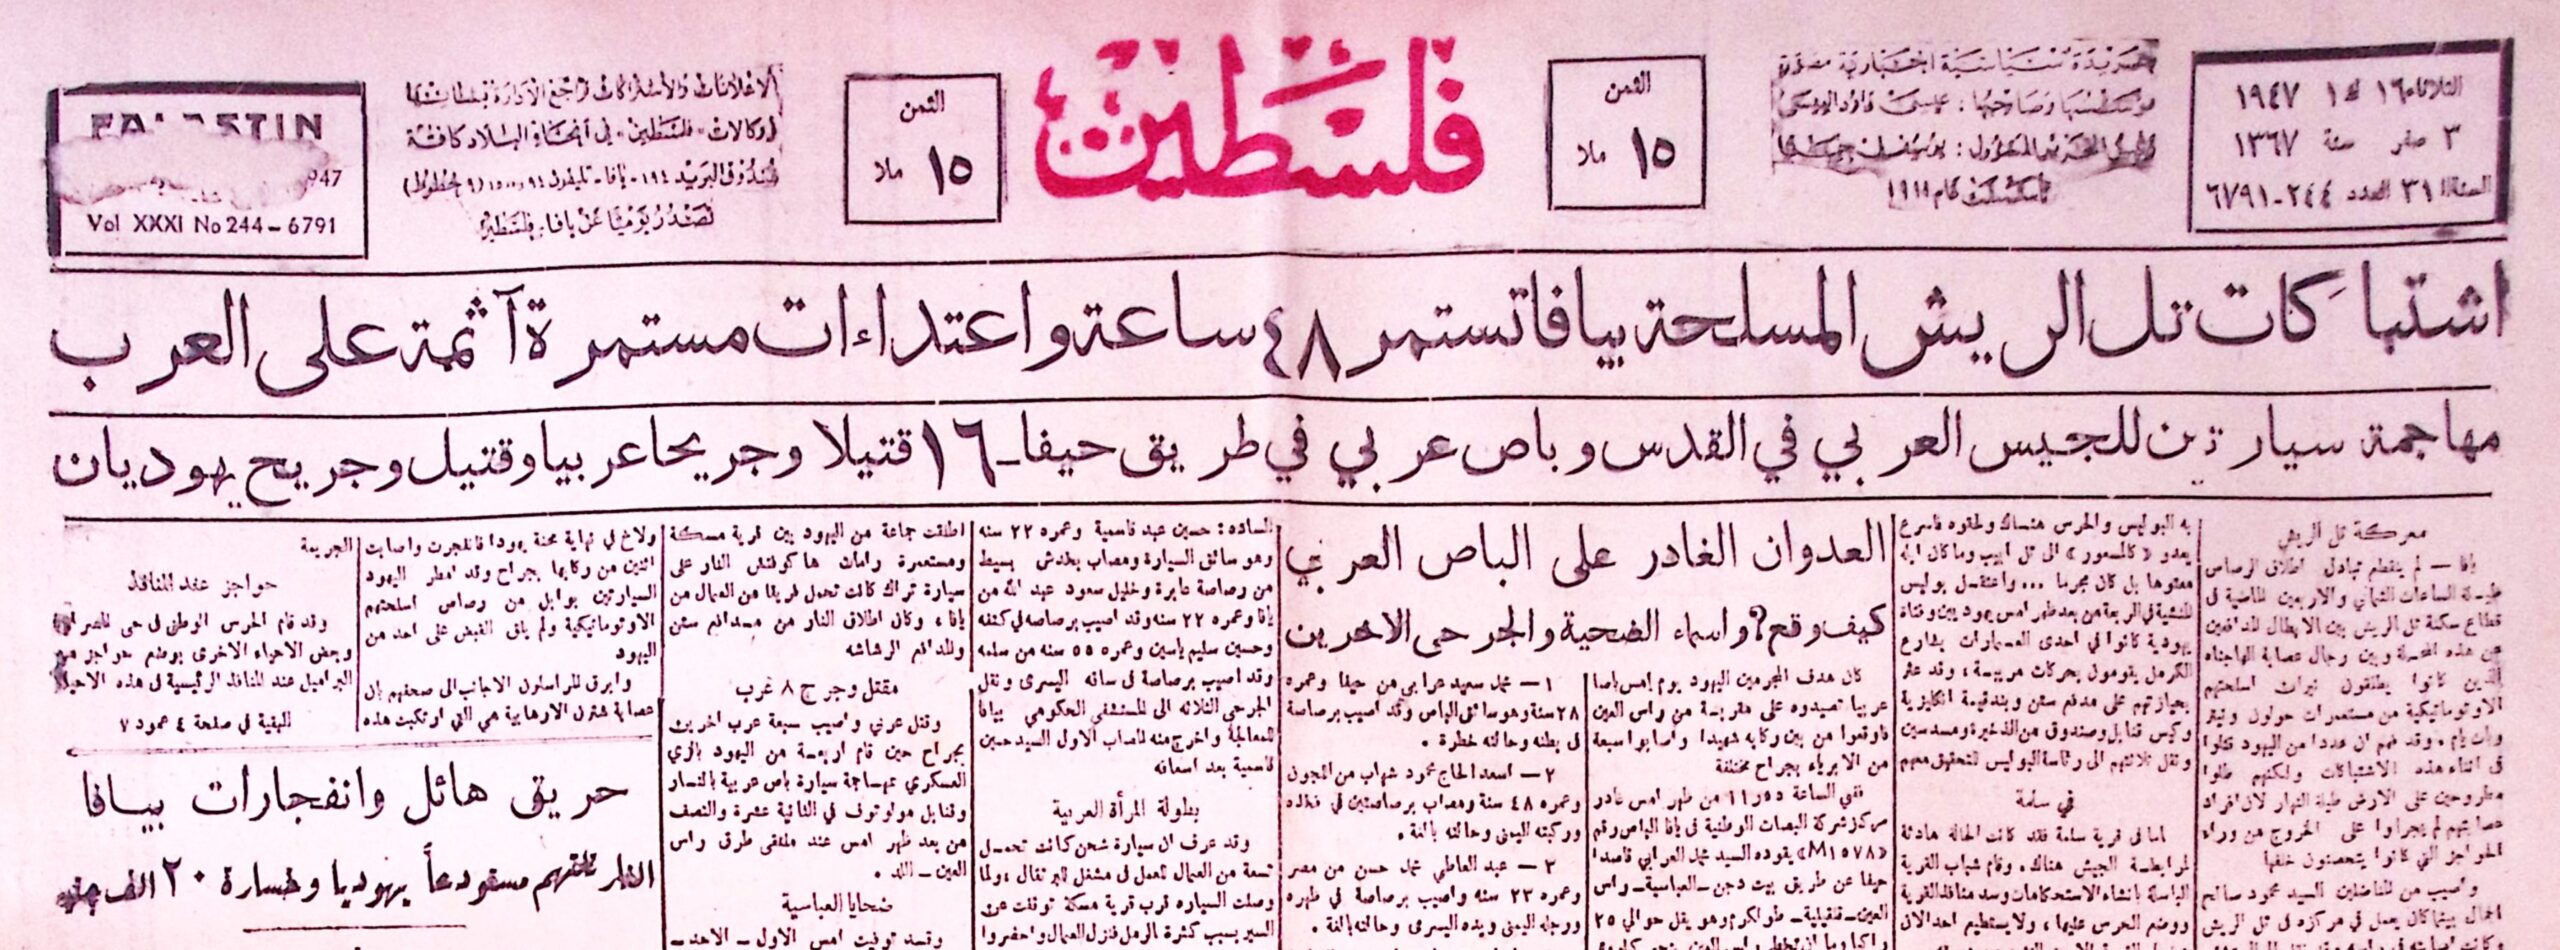 فلسطين
الثلاثاء ١٦ ك ١ ١٩٤٧
٣ صفر سنة ١٣٦٧
السنة ٣١ العدد ٢٤٤-٦٧٩١
جريدة سياسية اخبارية مصورة
مؤسسها وصاحبها : عيسى داود العيسى
تأسست عام ١٩١١
الثمن
١٥ ملا
الثمن
١٥ ملا
الاعلانات والاشتراكات تراجع الادارة بشأنها
او وكالات «فلسطين» في أنحاء البلاد كافة
تصدر يوميا عن يافا، فلسطين
947
Vol XXXI No 244-6791
اشتباكات تل الريش المسلحة بيافا تستمر ٤٨ ساعة واعتداءات مستمرة آثمة على العرب
مهاجمة سيارتين للجيس العربي في القدس وباص عربي في طريق حيفا - ١٦ قتيلا وجريحا عربيا وقتيل وجريح يهوديان
معركة تل الريش
يافا - لم ينقطع تبادل اطلاق الرصاص
طيلة الساعات الثماني والاربعين الماضية في
قطاع سكنة تل الريش بين الابطال المدافعين
عن هذه المحلة وبين رجال عصابة الهاجناه
الذين كانوا يطلقون نيران اسلحتهم
الاوتوماتيكية من مستعمرات حولون ونيتر
وبات يام. وقد فهم ان عددا من اليهود قتلوا
في اثناء هذه الاشتباكات ولكنهم ظلوا
مطروحين على الارض طيلة النهار لان افراد
عصابتهم لم يجرأوا على الخروج من وراء
الحواجز التي كانوا يتحصنون خلفها
واصيب من المناضلين السيد محمود صالح
الجمال بينما كان يعمل في مركزه في تل الريش
به البوليس والحرس هنساك ولحقوه فاسرع
يعدو «كالمسعور» الى تل ابيب وما كان ابله
معتوها بل كان مجرما ... واعتقل بوليس
المنشية في الرابعة من بعد ظهر امس يهوديين وفتاة
يهودية كانوا في احدى السيارات بشارع
الكرمل يقومون بحركات مريبة، وقد عثر
بحيازتهم على مدفع ستن وبندقية انكليزية
وكيس قنابل وصندوق من الذخيرة ومسدسين
ونقل ثلاثتهم الى رئاسة البوليس للتحقيق معهم
في سلمة
اما في قرية سلمة فقد كانت الحالة هادئة
لمرابطة الجيش هناك. وقام شباب القرية
البواسل بانشاء الاستحكامات وسد منافذ القرية
ووضع الحرس عليها، ولا يستطيع احد الان
العدوان الغادر على الباص العربي
كيف وقع؟ واسماء الضحية والجرحى الاخرين
كان هدف المجرمين اليهود يوم امس باصا
عربيا تصيدوه على مقربة من راس العين
فاوقعوا من بين ركابه شهيدا واصابوا سبعة
من الابرياء بجراح مختلفة
ففي الساعة ١١ من ظهر امس غادر
مركز شركة الباصات الوطنية في يافا الباص رقم
«M١٥٧٨» يقوده السيد محمد العرابي قاصدا
حيفا عن طريق بيت دجن-العباسية-راس
العين-قلقيلية-طولكرم وهو يقل حوالي ٢٥
١- محمد سعيد عرابي من حيفا وعمره
٢٨ سنة وهو سائق الباص وقد اصيب برصاصة
في بطنه وحالته خطرة .
٢- اسعد الحاج محمود شهاب من المجون
وعمره ٤٨ سنة ومصاب برصاصتين في فخذه
وركبته اليمنى وحالته بالغة .
٣- عبد العاطي محمد حسن من مصر
وعمره ٢٣ سنه واصيب برصاصة في ظهره
ورجله اليمنى ويده اليسرى وحالته بالغة .
الساده : حسين عبد قاسمية وعمره ٢٢ سنه
وهو سائق السيارة ومصاب بخدش بسيط
من رصاصة عابرة وخليل سعود عبد الله من
يافا وعمره ٢٢ سنه وقد اصيب برصاصة في كتفه
وحسين سليم ياسين وعمره ٥٥ سنه من سلمه
وقد اصيب برصاصة في ساقه اليسرى ونقل
الجرحى الثلاثه الى المستشفى الحكومي بيافا
للمعالجة واخرج منه المصاب الاول السيد حسين
قاسمية بعد اسعافه
بطولة المرأة العربية
وقد عرف ان سيارة شحن كانت تحمل
تسعة من العمال للعمل في مشغل للبرتقال ، ولما
وصلت السياره قرب قرية مسكة توقفت عن
السير بسبب كثرة الرمل فنزل العمال واحضروا
اطلقت جماعة من اليهود بين قرية مسكة
ومستعمرة رامات هاكوفتش النار على
سيارة تراك كانت تحمل فريقا من العمال من
يافا، وكان اطلاق النار من مدافع ستن
والمدافع الرشاشه
مقتل وجرح ٨ عرب
وقتل عربي واصيب سبعة عرب اخرين
بجراح حين قام اربعة من اليهود بالزي
العسكري بمهاجمة سيارة باص عربية بالنار
وقنابل مولوتوف في الثانية عشرة والنصف
من بعد ظهر امس عند ملتقى طرق راس
العين - اللد .
ضحايا العباسية
وقد توفيت امس الاول - الاحد -
ولاغ في نهاية محنة يهودا فانفجرت واصابت
اثنين من ركابها بجراح وقد امطر اليهود
السيارتين بوابل من رصاص اسلحتهم
الاوتوماتيكية ولم يلق القبض على احد من
اليهود
وابرق المراسلون الاجانب الى صحفهم ان
عصابة شترن الارهابية هي التي ارتكبت هذه
الجريمة
حواجز عند المنافذ
وقد قام الحرس الوطني في حي
وبعض الاحياء الاخرى بوضع حواجز من
البراميل عند المنافذ الرئيسية في هذه الاحياء
البقية في صفحة ٤ عمود ٧
حريق هائل وانفجارات بيافا
النار تلتهم مستودعاً يهوديا وخسارة ٢٠ الف جنيه